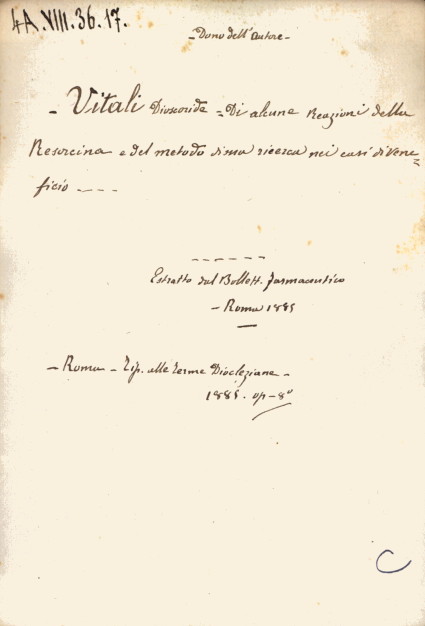 4A.VIII.36.17.
- Dono dell'autore -
- Vitali Dioscoride - Di alcune Reazioni della
Resorcina e del metodo di sua ricerca nei casi di Vene=
ficio ----
Estratto dal Bollett. farmaceutico
- Roma 1885
- Roma - Tip. alle Terme Diocleziane -
1885. op-8°
C